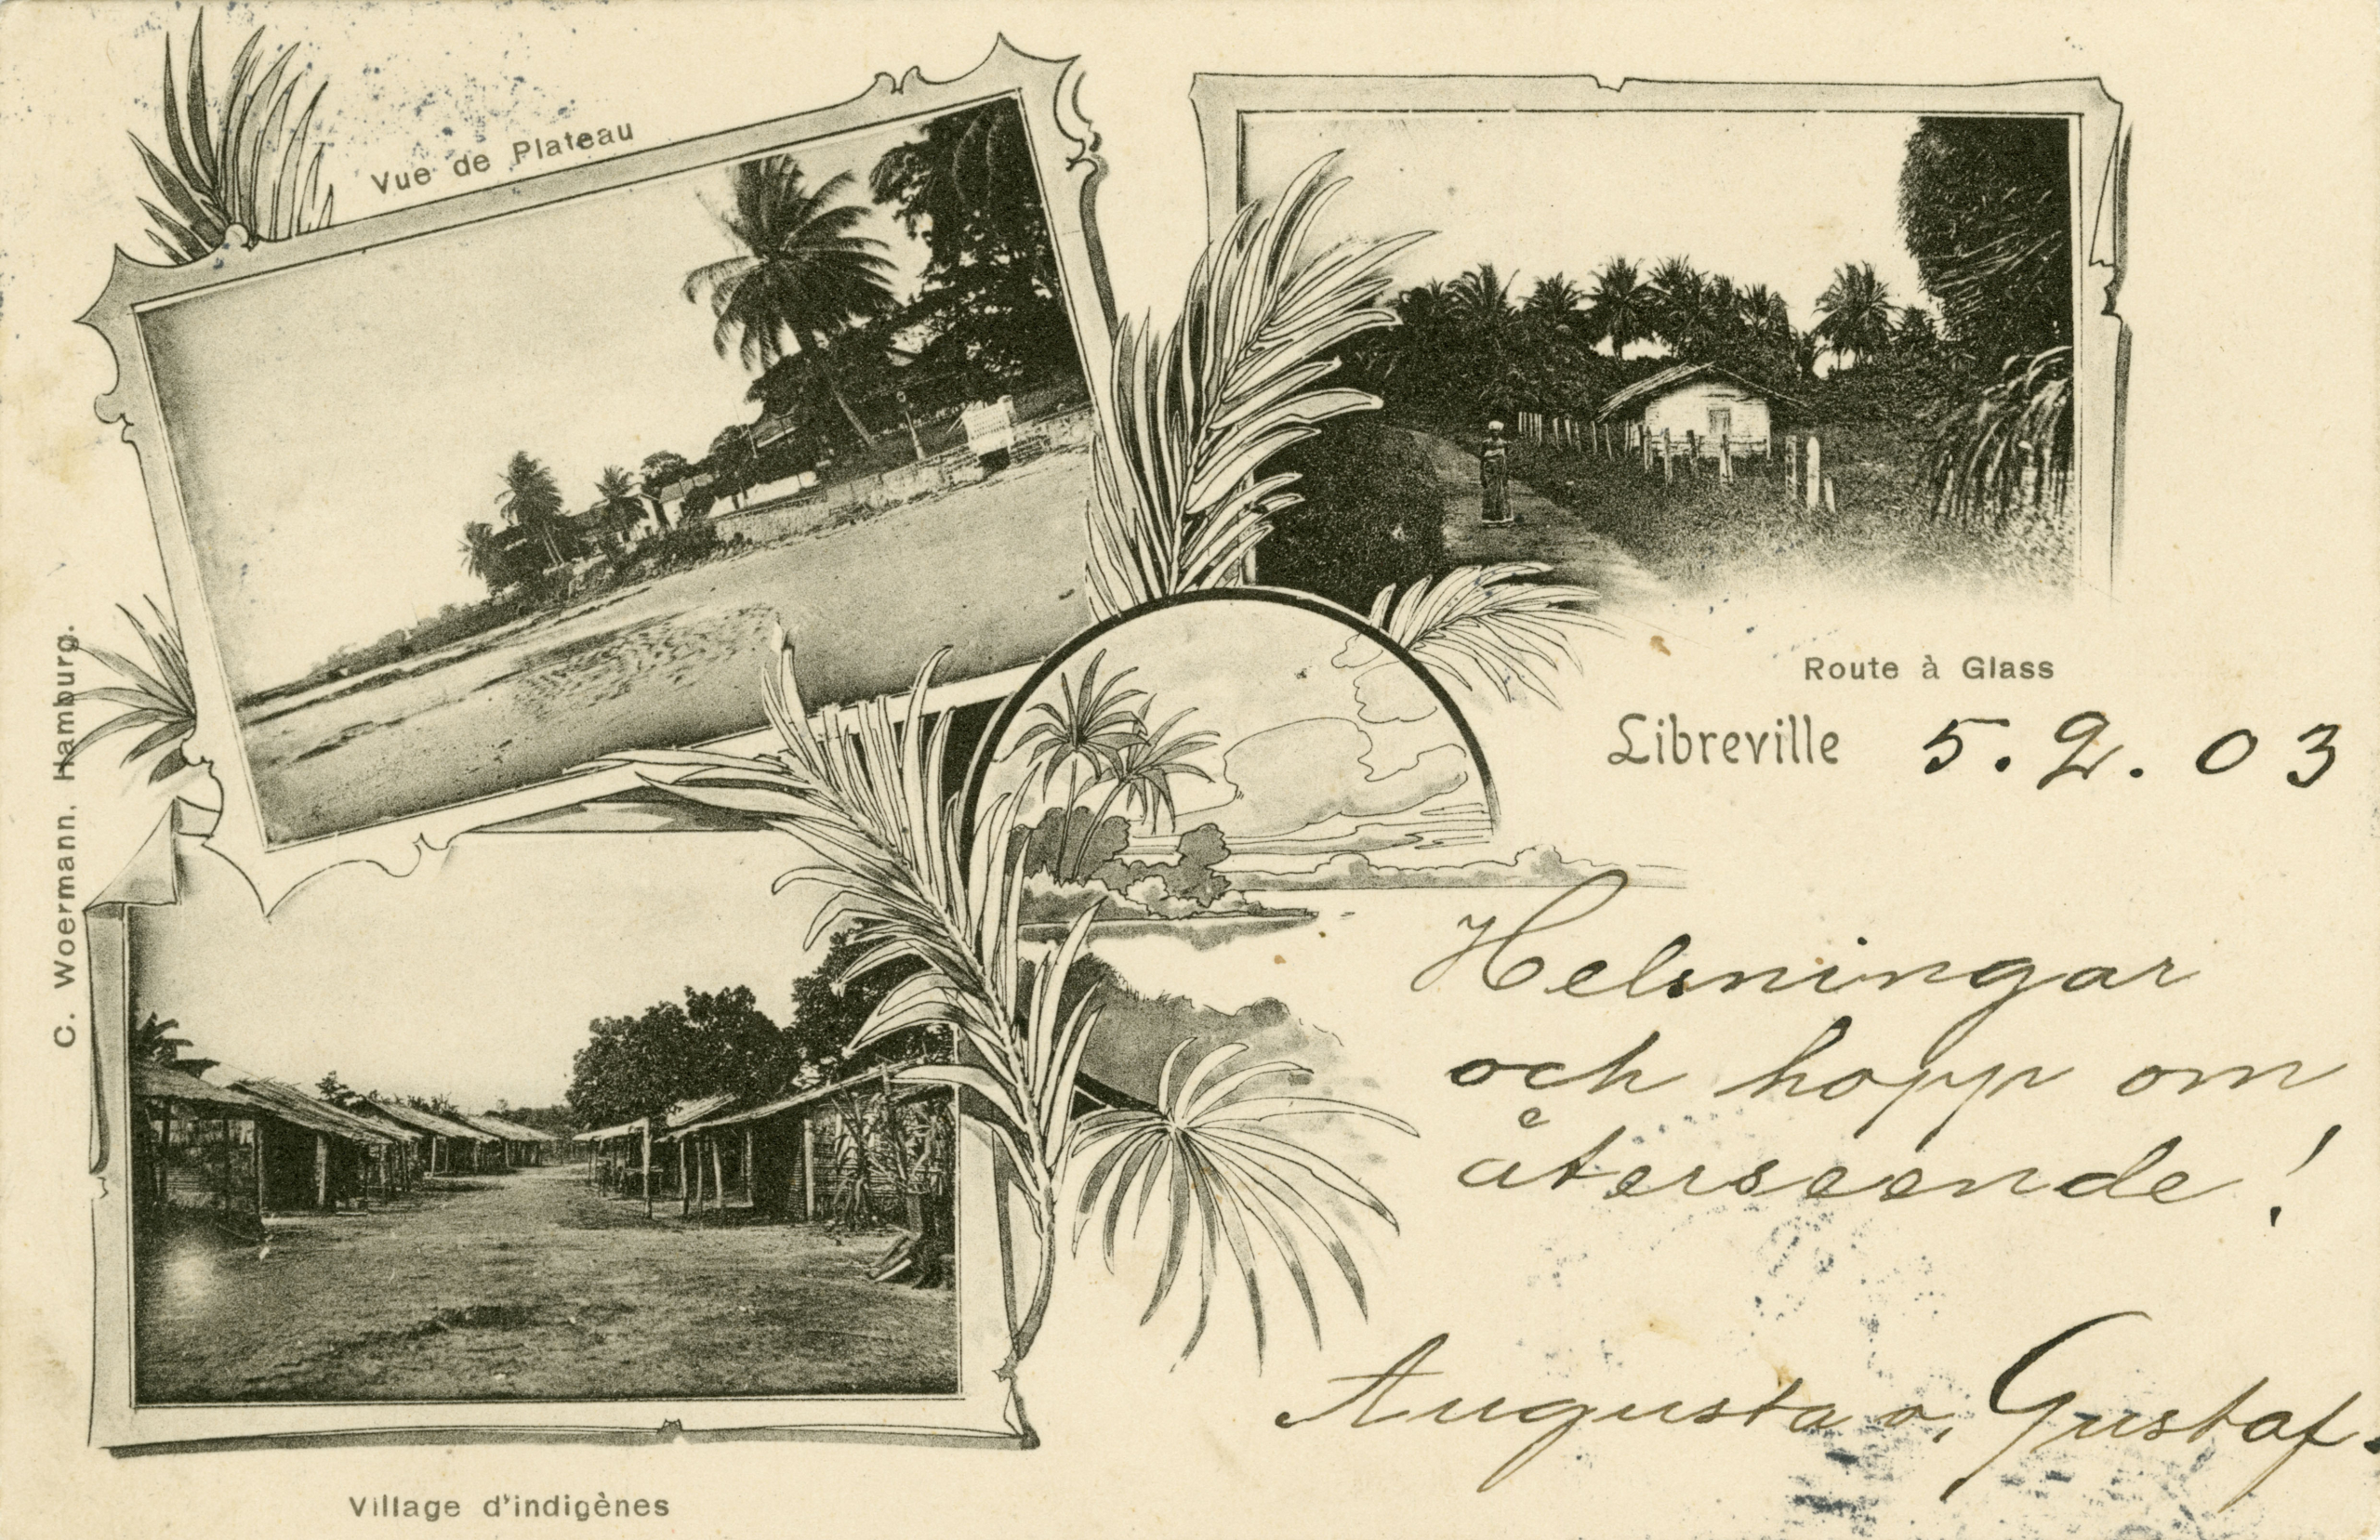 Vue de Plateau
Route à Glass
Libreville 5. 2. 03
Helsningar
och hopp om
återseende!
Augusta o. Gustaf.
Village d'indigènes
C. Woermann, Hamburg.